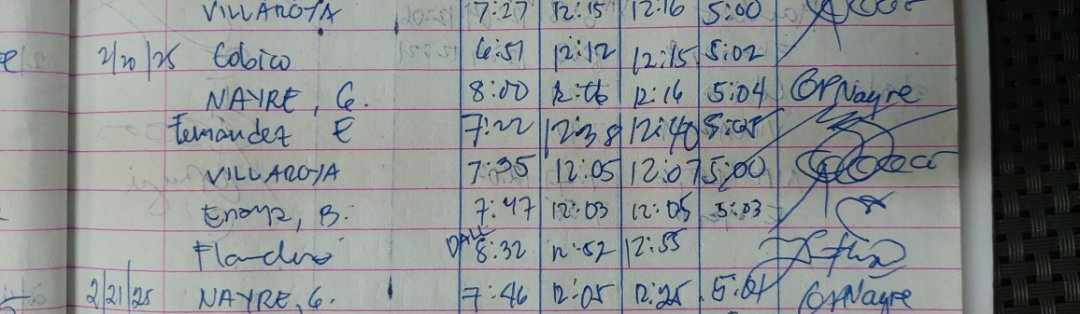 VILLAROYA 7:27 12:15 12:16 5:00
2/20/25 Cobico 6:51 12:12 12:15 5:02
NAYRE, G. 8:00 12:16 5:04 GPNayre
Fernandez E 7:22 12:38 12:40 5:05
VILLAROYA 7:35 12:05 12:07 5:00
B. 7:47 12:03 12:05 5:03
8:32 12:52 12:55
2/21/25 NAYRE, G. 7:46 12:05 12:25 5:01 GPNayre